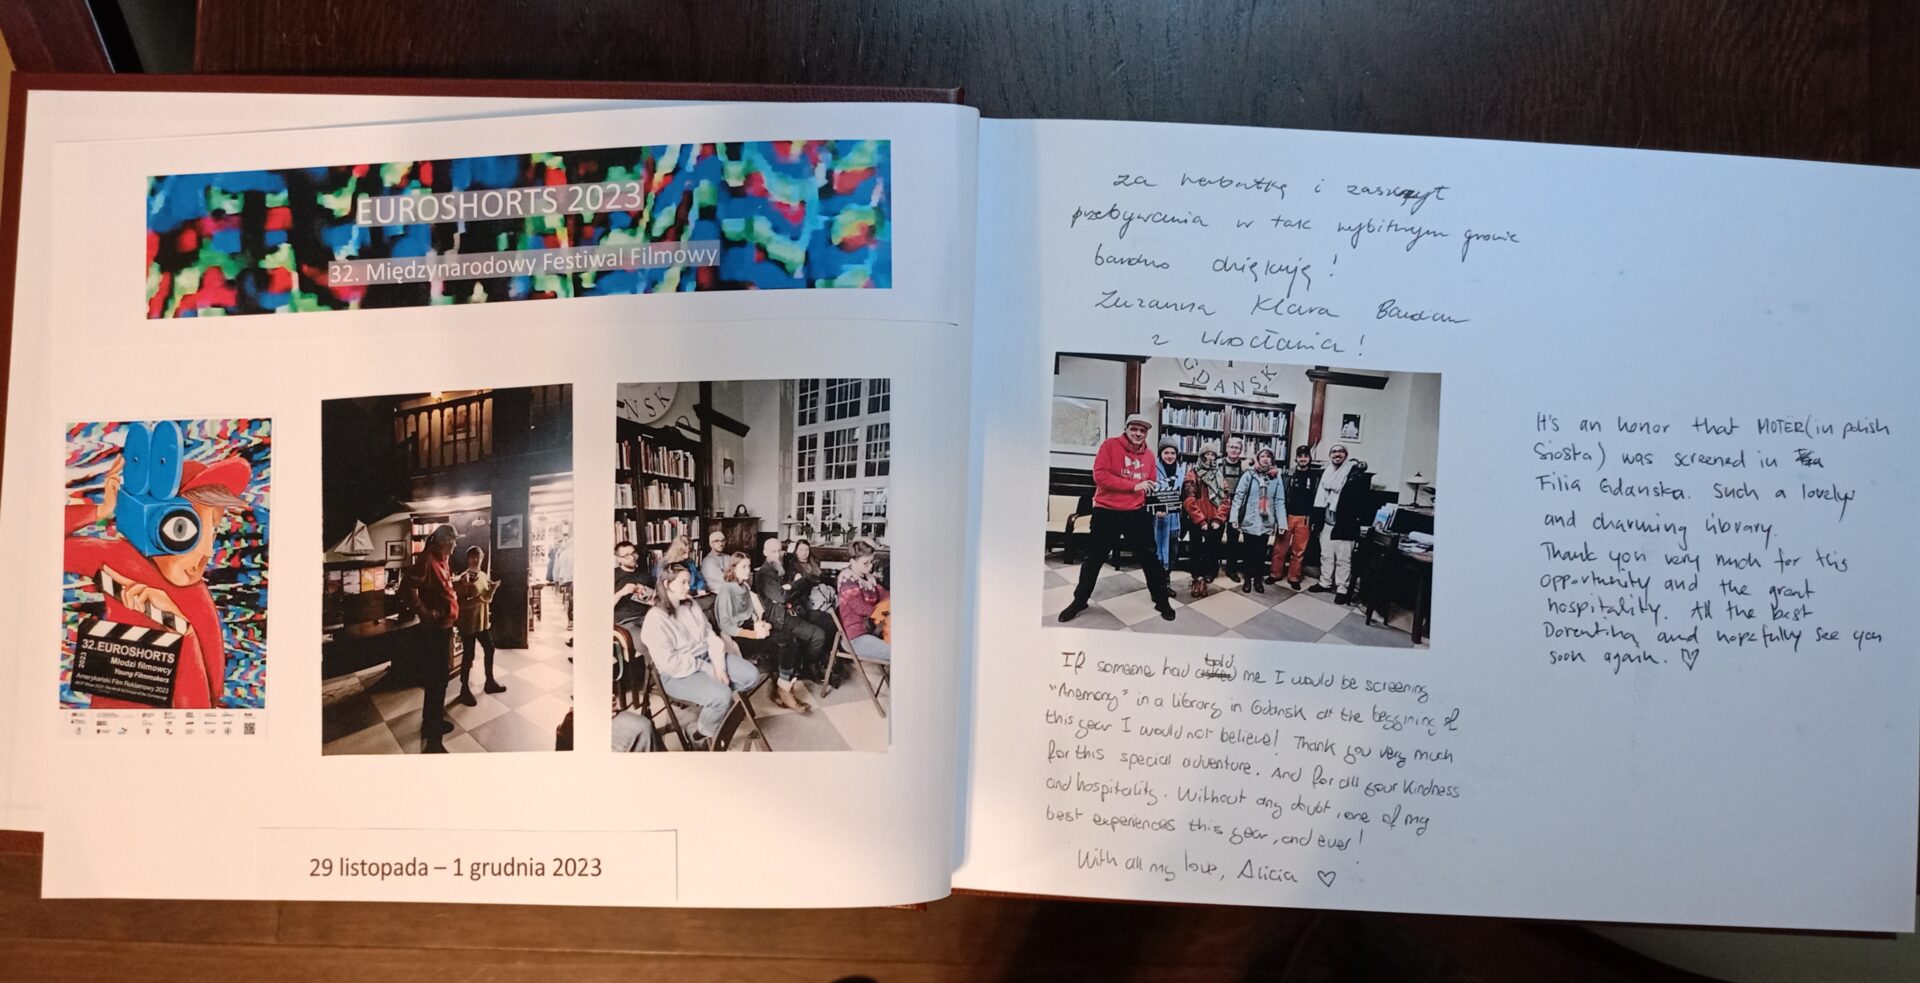 EUROSHORTS 2023
32. Międzynarodowy Festiwal Filmowy
NSK
32.EUROSHORTS
2023
Młodzi filmowcy
Young Filmmakers
Amerykański Film Reklamowy 2023
29 listopada – 1 grudnia 2023
za herbatkę i zaszczyt
przebywania w tak wybitnym gronie
bardzo dziękuję!
Zuzanna Klara
z Wrocławia!
GDANSK
If someone had told me I would be screening
"Anemony" in a library in Gdansk at the beggining of
this year I would not believe! Thank you very much
for this special adventure. And for all your kindness
and hospitality. Without any doubt, one of my
best experiences this year, and ever!
With all my love, Alicia ♡
It's an honor that MOTER (in polish
Siostra) was screened in
Filia Gdanska. Such a lovely
and charming library.
Thank you very much for this
opportunity and the great
hospitality. All the best
Dorentina and hopefully see you
soon again. ♡